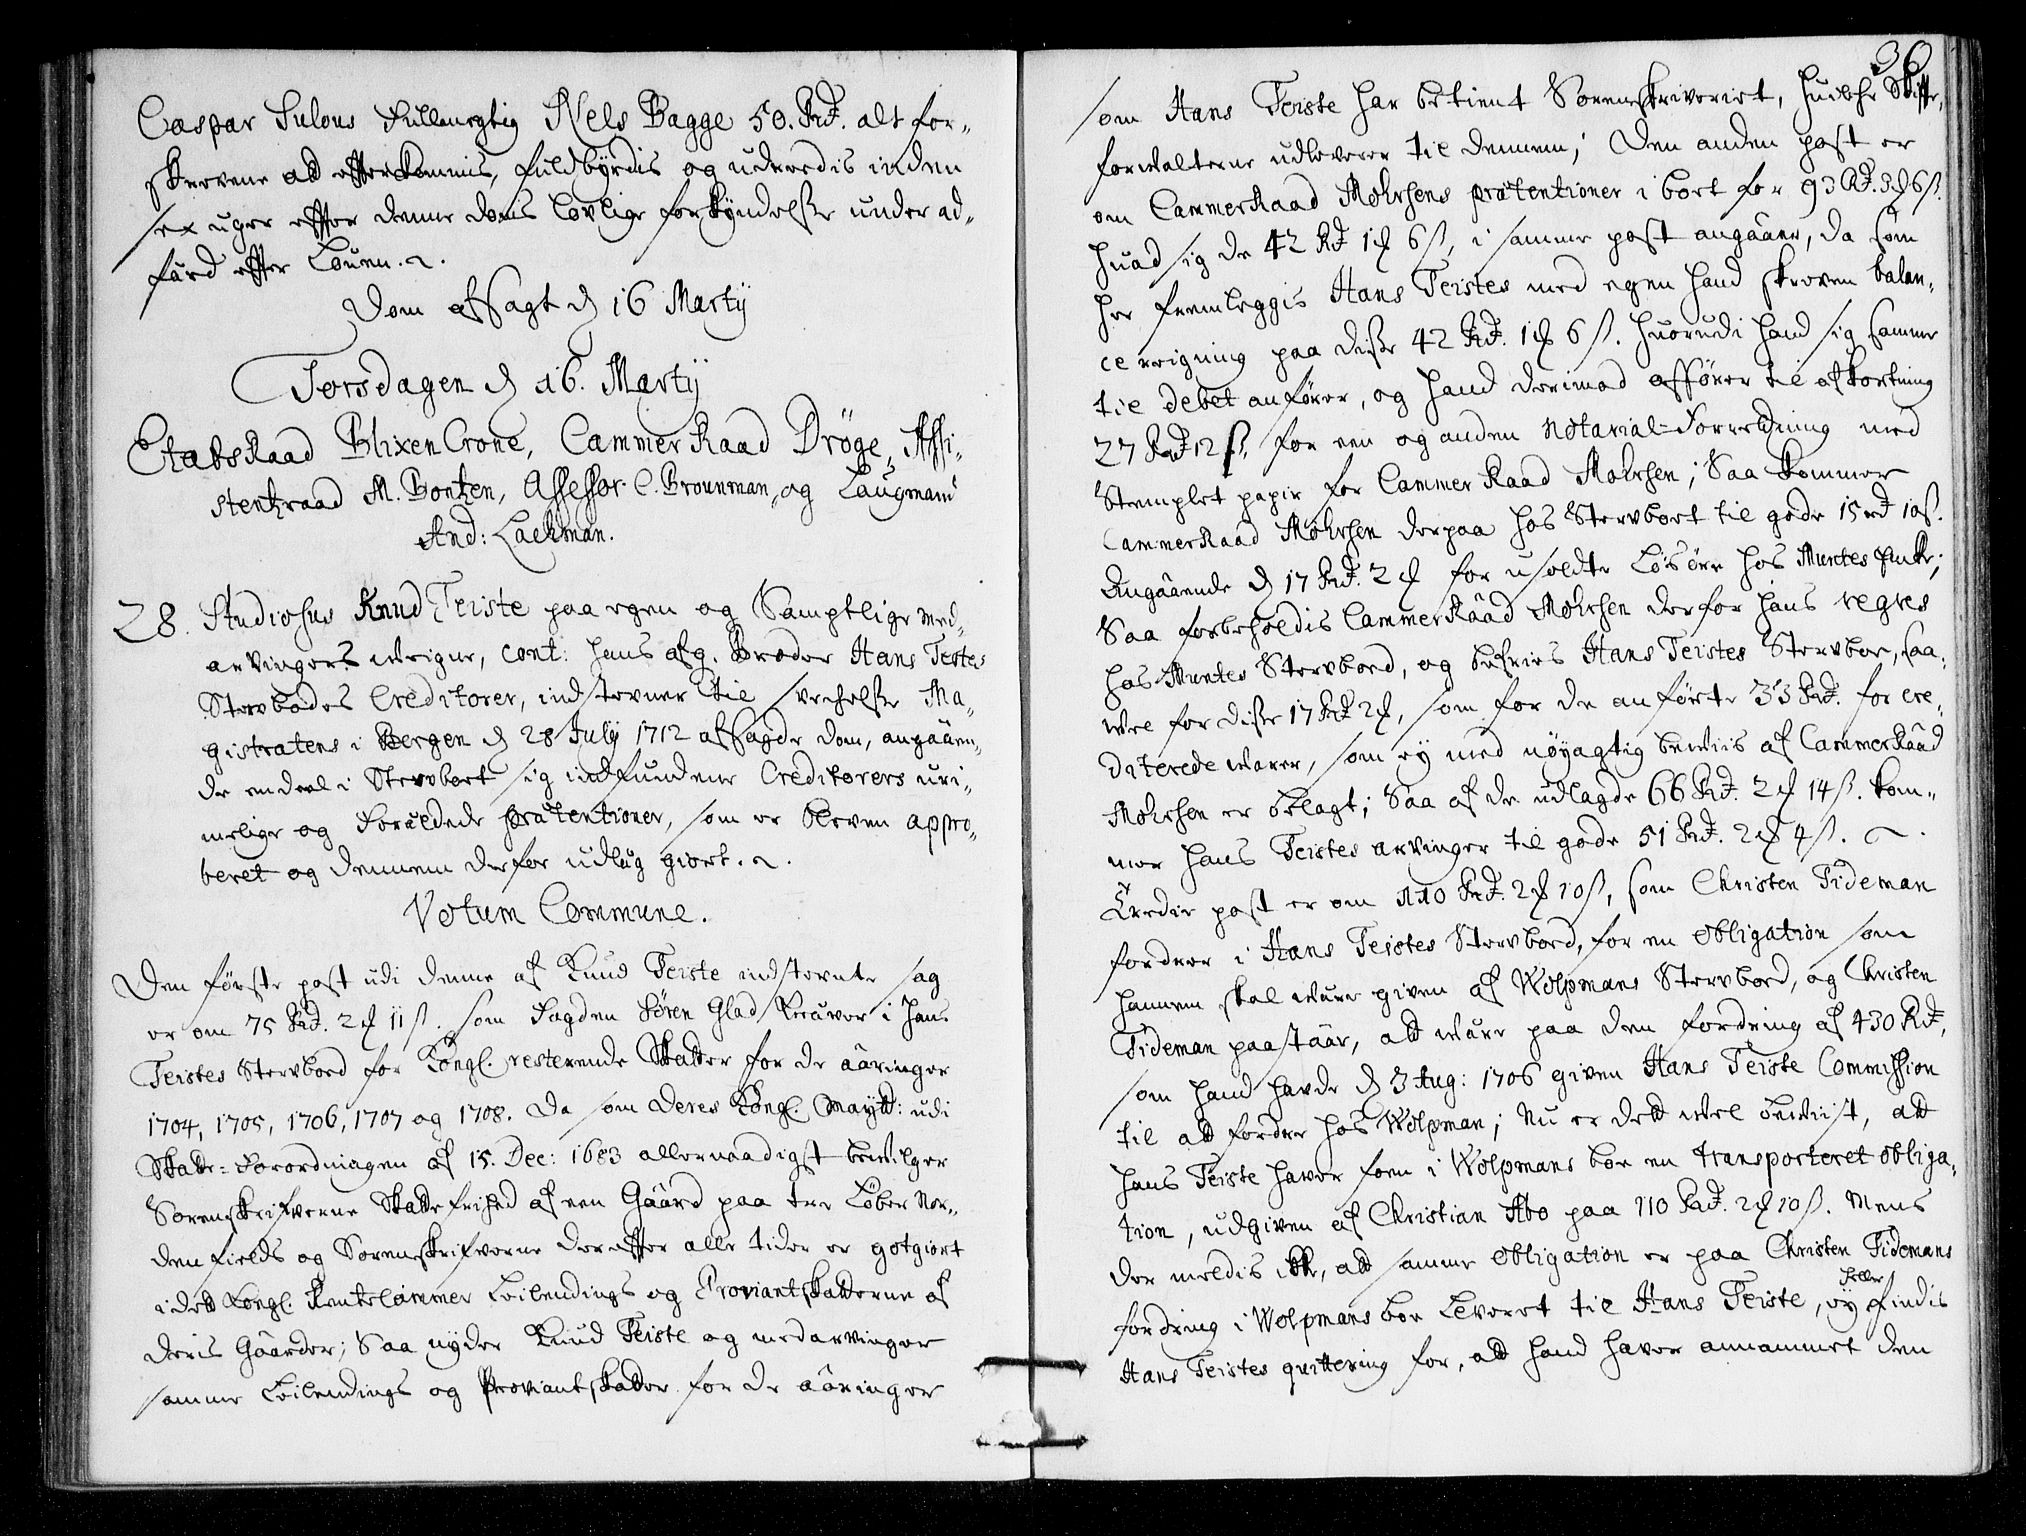 Caspar Sulous Fuldmegtig Niels Bagge 50. Rd. alt for-
skrevene att effterkommis, fuldbÿrdis og udreedis inden
sex uger effter denne doms lovlige forkÿndelsse under ad-
færd effter Louen.
Dom afsagt d 16 Martÿ
Torsdagen d 16. Martÿ
EtatsRaad BlixenCrone, CammerRaad Dröge, Assi-
stentzraad M. Bontzen, Assessor C. Brounman, og Laugmand
And: Lachman.
28. Studiosus Knud Teiste paa egen og Samptlige med-
arvingers weigne, cont: hans afg. Broder Hans Testes
Sterfbodes Creditorer, indstevner til svechelsse Ma-
gistratens i Bergen d 28 Julÿ 1712 afsagde dom, angaaen-
de en deel i Sterfboet sig indfundene Creditorers uri-
melige og Forældede prætentioner, som er bleven appro-
beret og dennem derfor udlæg giort.
Votum Commune.
Den förste post udi denne af Knud Teiste indstevnte sag
er om 75 Rd. 2 11 s. som Fogden Sören Glad kræver i Hans
Teistes Sterfboed for Kongl. resterende Skatter for de aaringer
1704, 1705, 1706, 1707 og 1708. Da som Deres Kongl. Maÿtt: udi
Skatte-Forordningen af 15. Dec: 1683 allernaadigst bevilger
Sorenskrifverne Skattefrihed af een Gaard paa tre Löber Nor-
denfields og Sorenskrifverne dereffter alle tider er gotgiort
i dett Kongl. Rentecammer Leilendings og Proviantskatterne af
deris Gaarder; Saa nÿder Knud Teiste og medarvinger
samme Leilendings og Proviantskatter for de aaringer
36
som Hans Teiste har betient Sorenskriveriet, huilche Skiffte-
forwalterne udleverer til dennem; Den anden post er
om CammerRaad Mohrsens prætentioner i boet for 93 Rd. 3 6 s.
huad sig de 42 Rd 1 6 s, i samme post angaaer, da som
her fremleggis Hans Teistes med egen haand skreven balan-
ce reigning paa disse 42 Rd. 1 6 s. huorudi hand sig samme
til debet anförer, og hand derimod afförer til afkortning
27 Rd 12 s. for een og anden Notarial-Forretning med
Stemplet papir for CammerRaad Mohrsen; Saa kommer
CammerRaad Mohrsen derpaa hos Sterfboet til gode 15 rd 10 s.
Angaaende d 17 Rd. 2 for usoldte Lösöre hos Muntes Enke;
Saa forbeholdis CammerRaad Mohrsen derfor hans regres
hos Muntes Sterfboed, og befries Hans Teistes Sterfboe, saa-
wel for disse 17 Rd 2, som for de anförte 33 Rd. for cre-
diterede warer, som eÿ med nöÿagtig beviis af CammerRaad
Mohrsen er belagt; Saa af de udlagde 66 Rd. 2 14 s. kom-
mer Hans Teistes arvinger til gode 51 Rd. 2 4 s.
Tredie post er om 110 Rd. 2 10 s, som Christen Tideman
fordrer i Hans Teistes Sterfboed, for en obligation som
hannem skal være given af Wolpmans Sterfboed, og Christen
Tideman paastaar, att være paa den fordring af 430 Rd,
som hand hafde d 3 Aug: 1706 given Hans Teiste Commission
til att fordre hos Wolpman; Nu er dett vel beviist, att
Hans Teiste haver faaen i Wolpmans boe en transporteret obliga-
tion, udgiven af Christian Abo paa 110 Rd. 2 10 s. Mens
der meldis ikke, att samme obligation er paa Christen Tidemans
fordring i Wolpmans boe Leveret til Hans Teiste, eÿ heller findis
Hans Teistes qvittering for, att hand haver annammet den